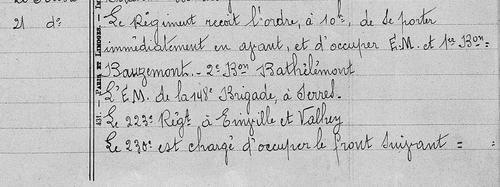 21 do Le Régiment reçoit l'ordre, à 10h, de se porter
immédiatement en avant, et d'occuper E.M. et 1er Bon =
Bauzemont. - 2e Bon Bathélémont
L'E.M. de la 148e Brigade, à Serres.
Le 223e Régt à Einville et Valhey
Le 230e est chargé d'occuper le front suivant = =